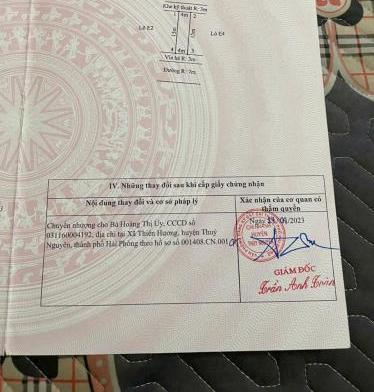 Khe kỹ thuật R: 2m
1 4m 2
Lô E2
15m
15m
Lô E4
4 4m 3
Vỉa hè R: 3m
Đường R: 7m
IV. Những thay đổi sau khi cấp giấy chứng nhận
Nội dung thay đổi và cơ sở pháp lý
Xác nhận của cơ quan có
thẩm quyền
Chuyển nhượng cho Bà Hoàng Thị Úy, CCCD số
031160004192, địa chỉ tại Xã Thiên Hương, huyện Thuỷ
Nguyên, thành phố Hải Phòng theo hồ sơ số 001408.CN.001
Ngày /2023
CHI NHÁNH
HUYỆN
GIÁM ĐỐC
Trần Anh